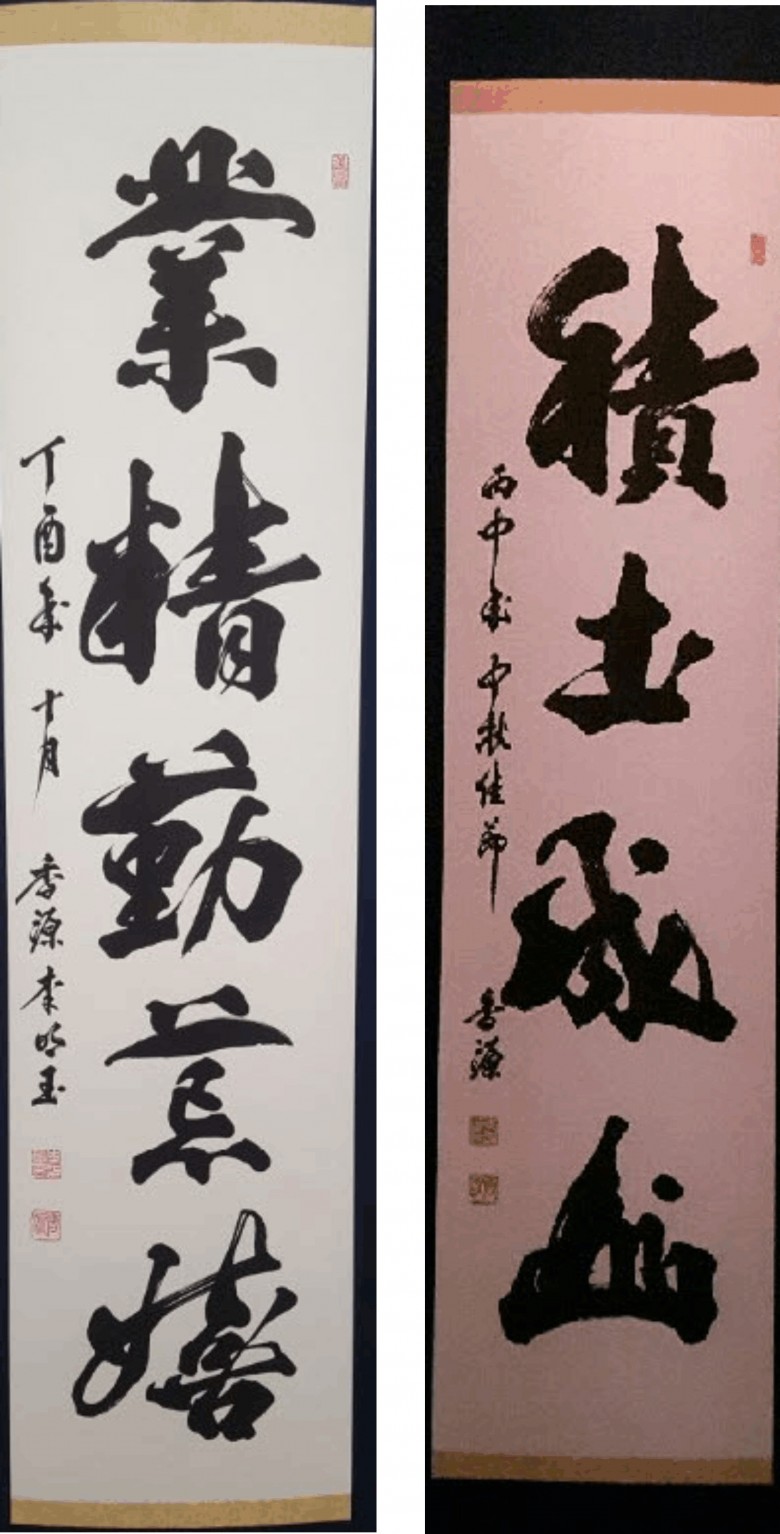 業精勤荒嬉
丁酉年 十月 香源 李明玉
積土成山
丙申歲 中秋佳節 香源